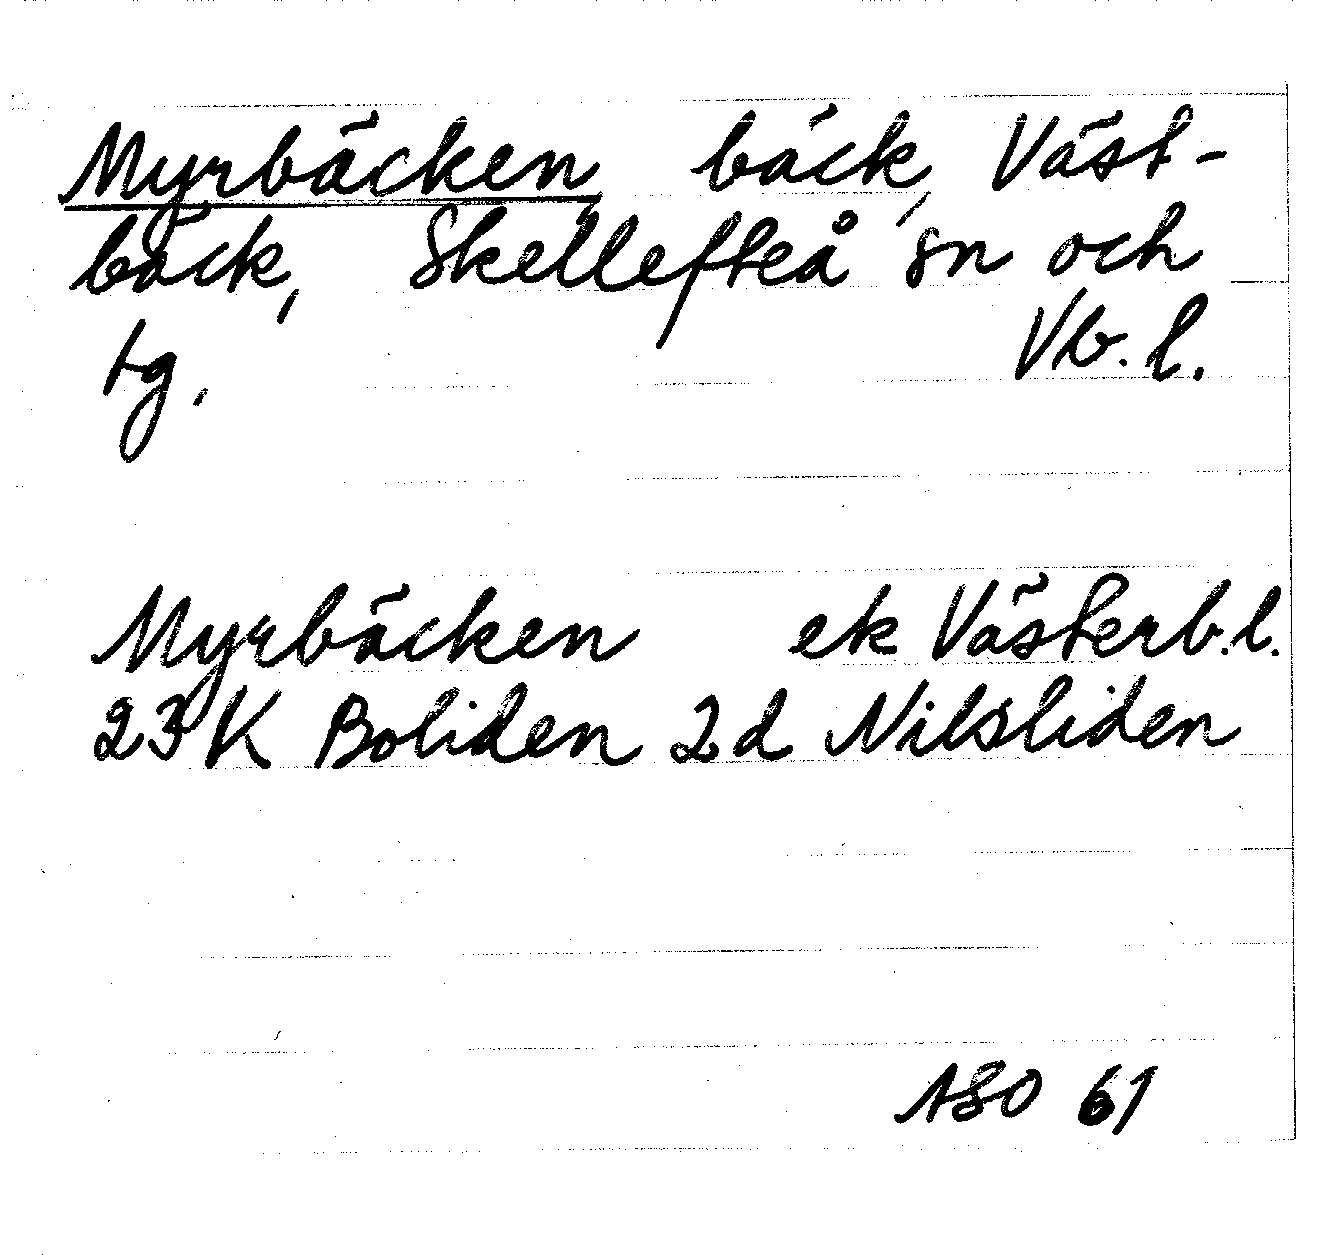 Myrbäcken bäck, Väst-
bäck, Skellefteå sn och
tg. Vb. l.
Myrbäcken ek Västerb.l.
23 K Boliden 2d Nilsliden
ASO 61